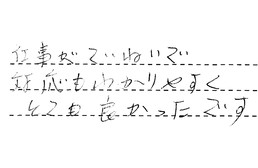 仕事がていねいで
対応もわかりやすく
とても良かったです